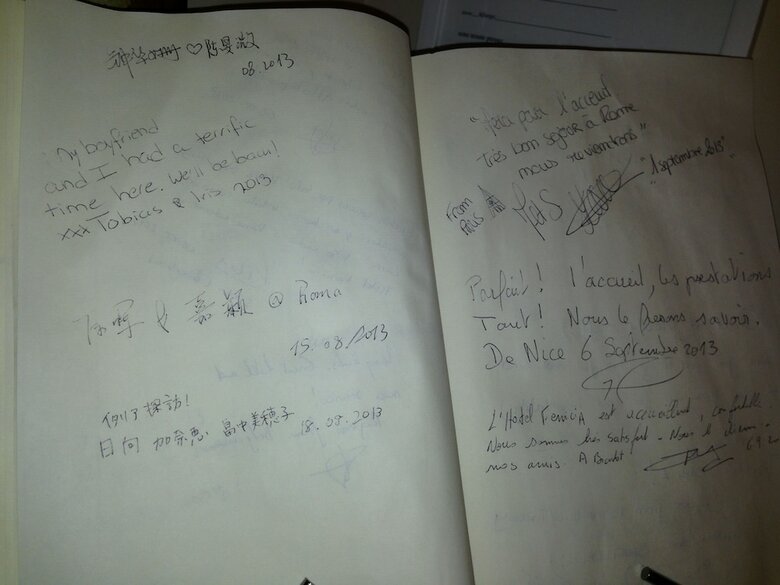 ♡陈曼
08.2013
My boyfriend
and I had a terrific
time here. We'll be back!
xxx Tobias & Iris 2013
& 嘉颖 @ Roma
15.08.2013
探訪!
日向 加奈恵 畠中美穂子 18.09.2013
pour l'accueil
Très bon séjour à Rome
nous reviendrons"
"1 septembre 2013"
From
Paris
Parfait! l'accueil, les prestations
Tout! Nous le ferons savoir.
De Nice 6 Septembre 2013
L'Hotel FenicIA est accueillant, confortable
Nous sommes très satisfait - Nous le dirons
nos amis. A Bientôt
6.9.20